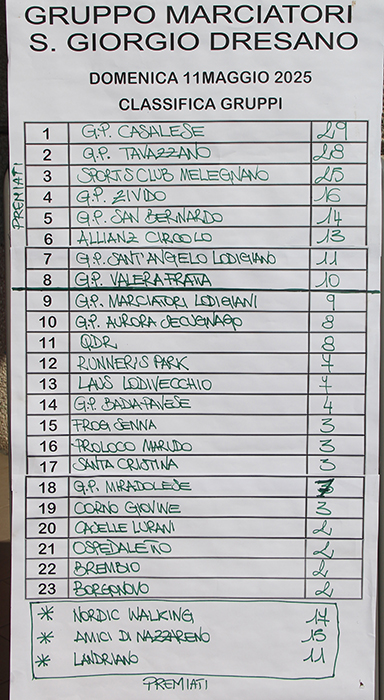 GRUPPO MARCIATORI
S. GIORGIO DRESANO
DOMENICA 11MAGGIO 2025
CLASSIFICA GRUPPI
PREMIATI
1 G.P. CASALESE 29
2 G.P. TAVAZZANO 28
3 SPORTS CLUB MELEGNANO 25
4 G.P. ZIVIDO 16
5 G.P. SAN BERNARDO 14
6 ALLIANZ CIRCOLO 13
7 G.P. SANT'ANGELO LODIGIANO 11
8 G.P. VALERA FRATTA 10
9 G.P. MARCIATORI LODIGIANI 9
10 G.P. AURORA SECUGNAGO 8
11 QDR 8
12 RUNNERIS PARK 7
13 LAUS LODIVECCHIO 7
14 G.P. BADIA PAVESE 4
15 FROG SENNA 3
16 PROLOCO MARUDO 3
17 SANTA CRISTINA 3
18 G.P. MIRADOLESE 3
19 CORNO GIOVINE 3
20 CASELLE LURANI 2
21 OSPEDALETTO 2
22 BREMBIO 2
23 BORGONOVO 2
* NORDIC WALKING 17
* AMICI DI NAZZARENO 15
* LANDRIANO 11
PREMIATI